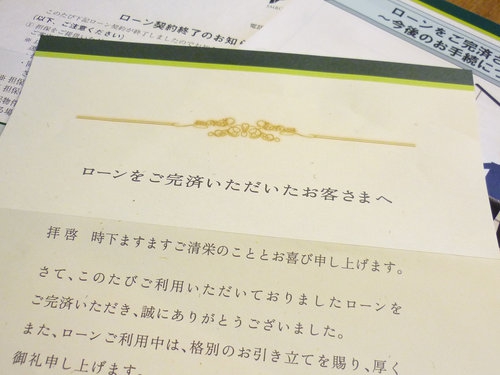 ローン契約終了のお知ら
このたび下記ローン契約が終了しましたので
(以下、ご注意ください)
ローンをご完済さ
～今後のお手続に
ローンをご完済いただいたお客さまへ
拝啓 時下ますますご清栄のこととお喜び申し上げます。
さて、このたびご利用いただいておりましたローンを
ご完済いただき、誠にありがとうございました。
また、ローンご利用中は、格別のお引き立てを賜り、厚く
御礼申し上げます。